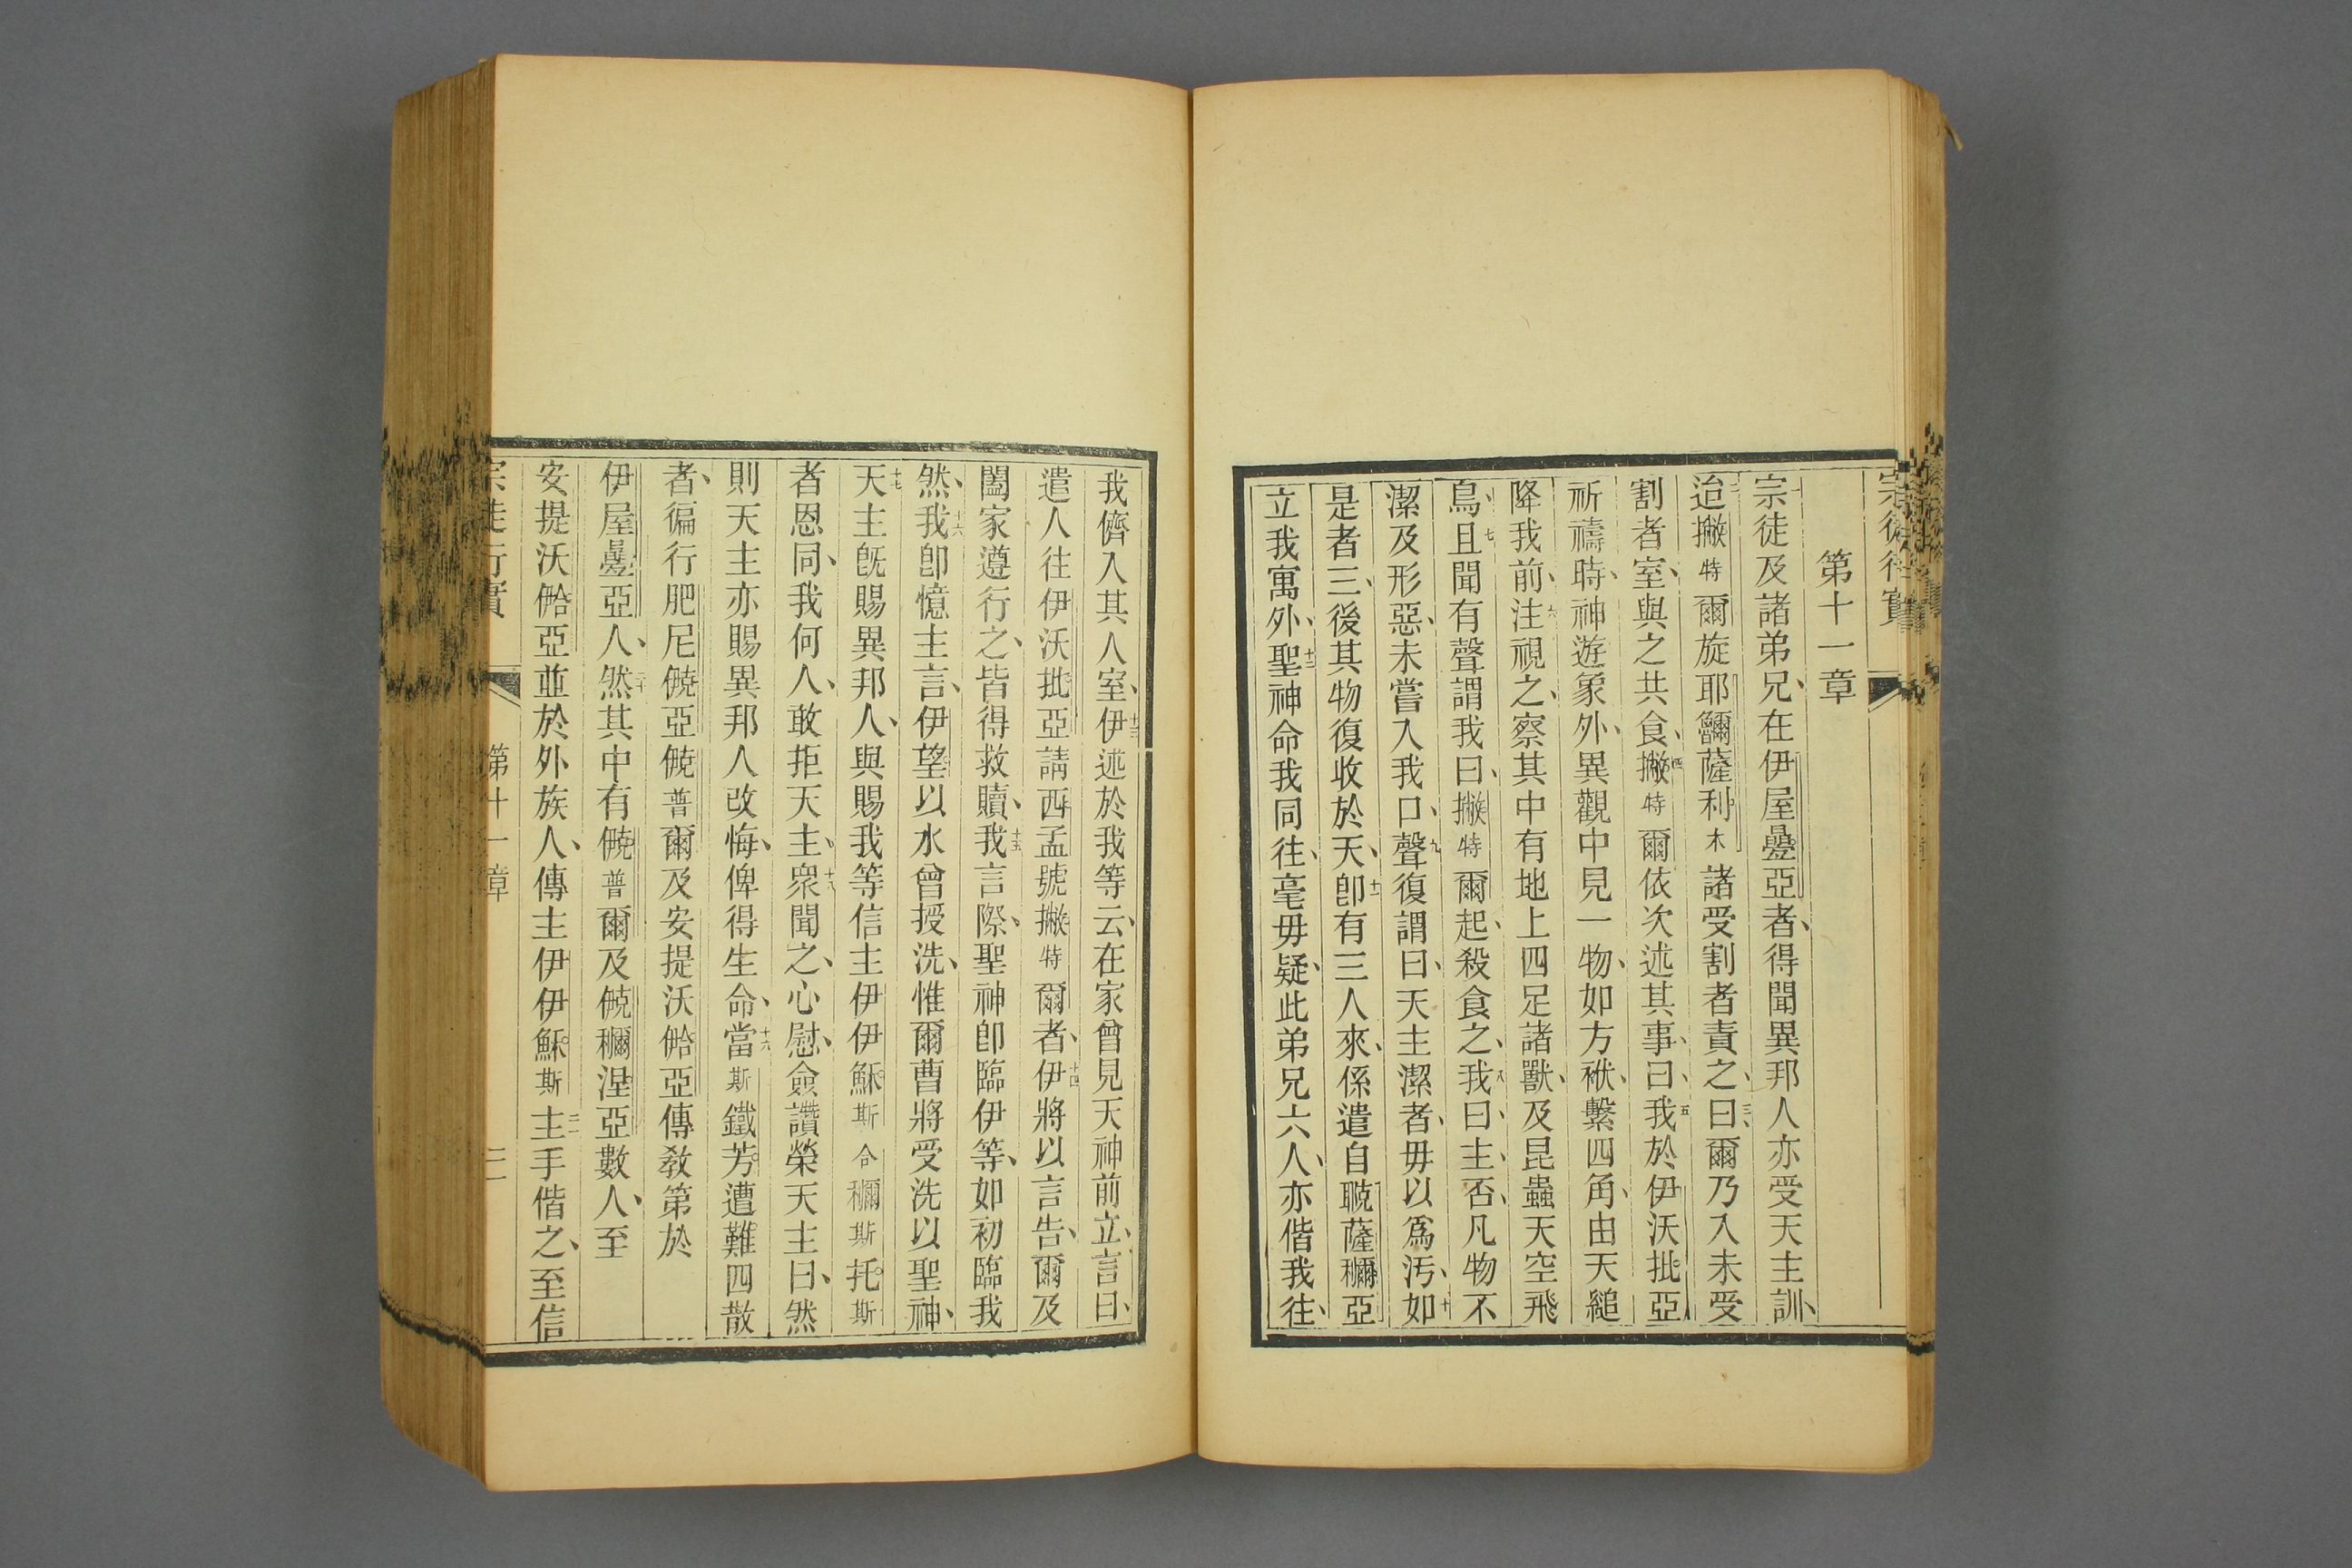 宗徒行實
第十一章
一宗徒及諸弟兄、在伊屋疊亞者、得聞異邦人亦受天主訓、
二迨撇特爾旋耶鸞薩利木諸受割者責之、三曰、爾乃入未受
割者室、與之共食、四撇特爾依次述其事、曰、五我於伊沃批亞
祈禱時、神遊象外、異觀中見一物、如方袱、繫四角、由天縋
降我前、六注視之、察其中有地上四足諸獸、及昆蟲天空飛
鳥、七且聞有聲謂我曰、撇特爾起、殺食之、八我曰、主、否、凡物不
潔及形惡、未嘗入我口、九聲復謂曰、天主潔者、毋以爲汚、十如
是者三、後其物復收於天、十一卽有三人來、係遣自聀薩穪亞
立我寓外、十二聖神命我同往、毫毋疑、此弟兄六人、亦偕我往、
我儕入其人室、十三伊述於我等云、在家曾見天神前立、言曰、
遣人往伊沃批亞請西孟號撇特爾者、十四伊將以言告、爾及
闔家遵行之、皆得救贖、十五我言際、聖神卽臨伊等、如初臨我
然、十六我卽憶主言、伊望以水曾授洗、惟爾曹將受洗以聖神、
十七天主旣賜異邦人、與賜我等信主伊伊穌斯合穪斯托斯
者恩同、我何人、敢拒天主、十八衆聞之、心慰、僉讚榮天主曰、然
則天主亦賜異邦人改悔、俾得生命、十六當斯鐵芳遭難四散
者、徧行肥尼𠌥亞𠌥普爾及安提沃𠌥亞傳敎第於
伊屋疊亞人、二十然其中有𠌥普爾及𠌥穪涅亞數人、至
安提沃𠌥亞並於外族人、傳主伊伊穌斯二一主手偕之、至信
宗徒行實
第十一章
二一